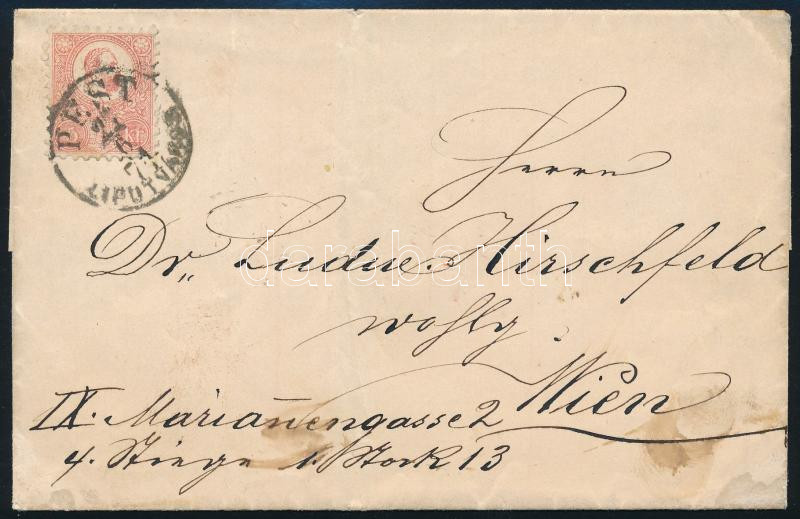 PEST
LIPÓTVÁROS
Herrn
Dr. Hirschfeld
Wien
IX. Mariannengasse 2
4. Stiege 1. Stock 13
darabanth